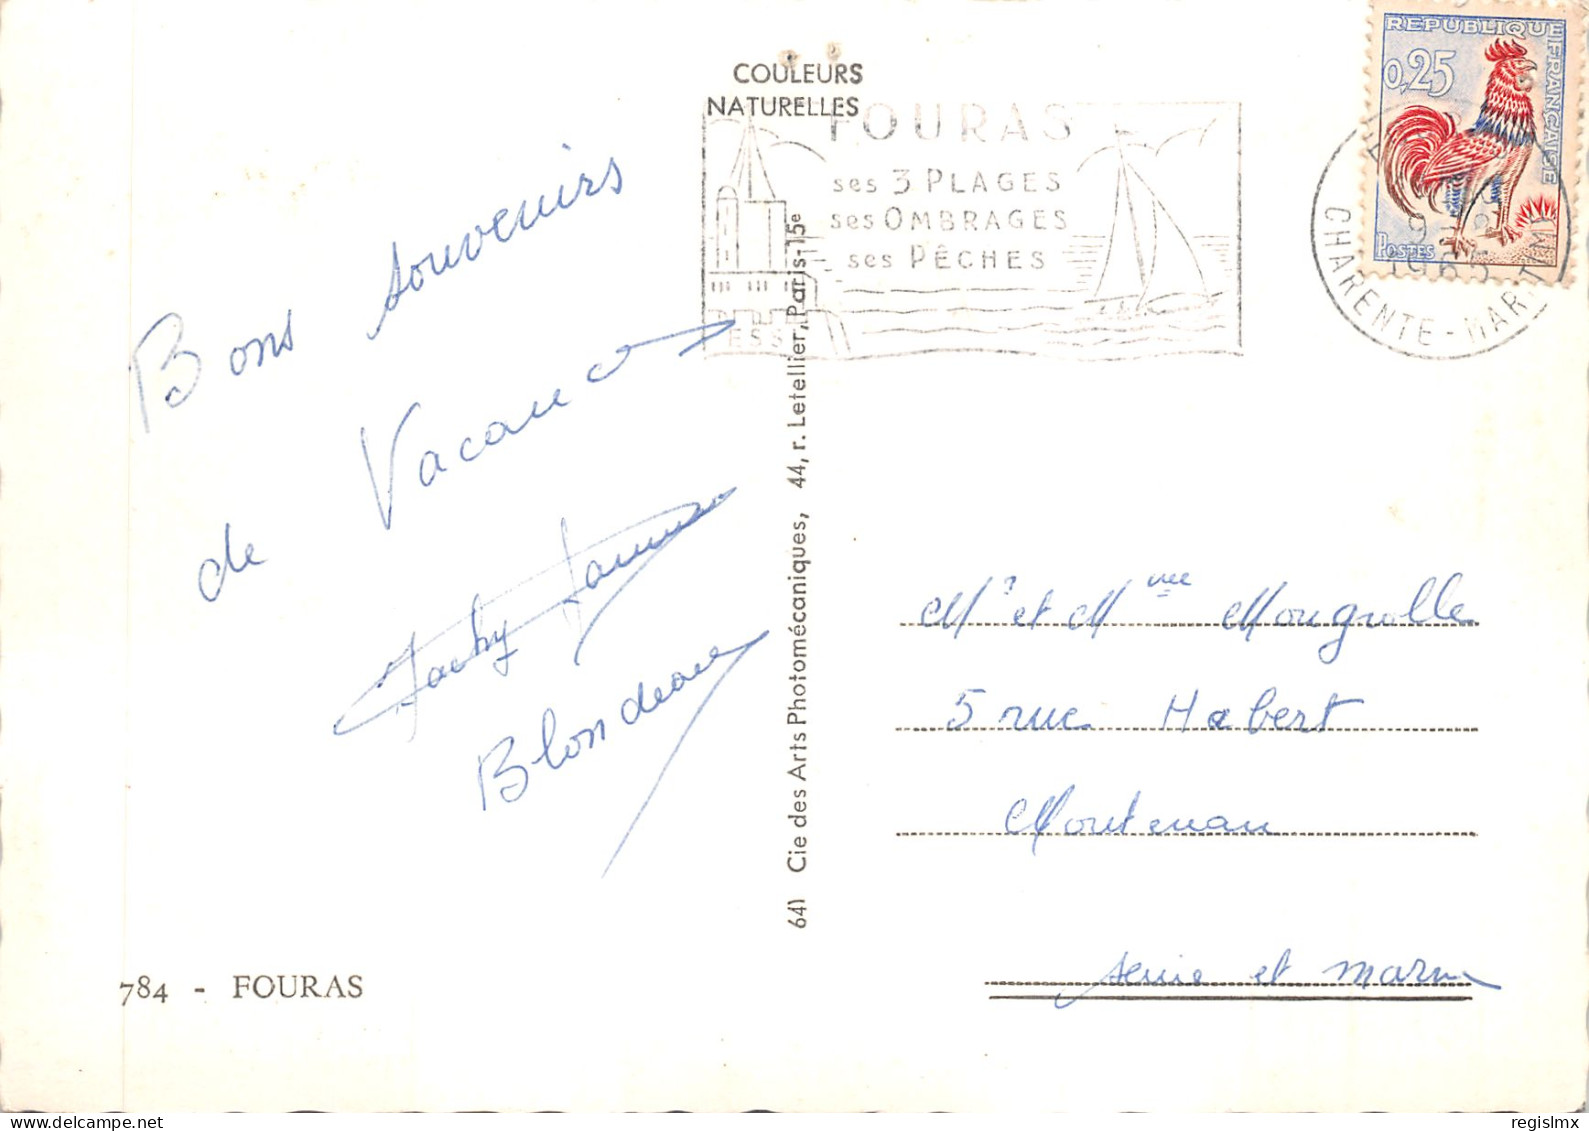 COULEURS
NATURELLES
FOURAS
ses 3 PLAGES
ses OMBRAGES
ses PÊCHES
REPUBLIQUE FRANÇAISE
0,25
POSTES
9
1965
CHARENTE-MARITIME
Bons souvenirs
de Vacances
Blondeau
641 Cie des Arts Photomécaniques, 44, r. Letellier, Paris-15e
Mr et Mme Mougnolle
5 rue Habert
Montereau
seine et marne
784 - FOURAS
regislmx